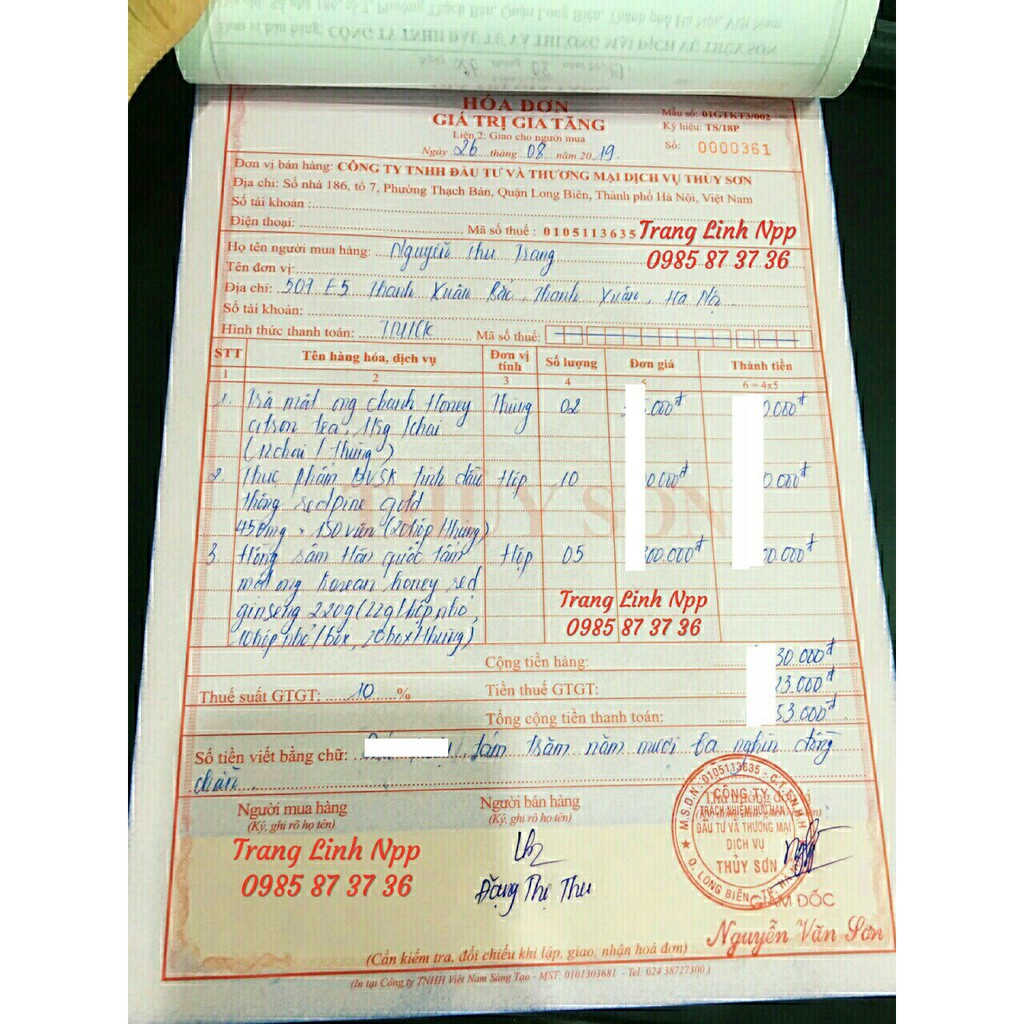 Đơn vị bán hàng: CÔNG TY TNHH ĐẦU TƯ VÀ THƯƠNG MẠI DỊCH VỤ THỦY SƠN
HÓA ĐƠN
GIÁ TRỊ GIA TĂNG
Liên 2: Giao cho người mua
Ngày 26 tháng 08 năm 2019
Mẫu số: 01GTKT3/002
Ký hiệu: TS/18P
Số: 0000361
Đơn vị bán hàng: CÔNG TY TNHH ĐẦU TƯ VÀ THƯƠNG MẠI DỊCH VỤ THỦY SƠN
Địa chỉ: Số nhà 186, tổ 7, Phường Thạch Bàn, Quận Long Biên, Thành phố Hà Nội, Việt Nam
Số tài khoản:
Điện thoại: Mã số thuế: 0105113635
Trang Linh Npp
0985 87 37 36
Họ tên người mua hàng: Nguyễn Thu Trang
Tên đơn vị:
Địa chỉ: 507 E5 Thanh Xuân Bắc, Thanh Xuân, Hà Nội
Số tài khoản:
Hình thức thanh toán: TM/CK Mã số thuế:
STT Tên hàng hóa, dịch vụ Đơn vị tính Số lượng Đơn giá Thành tiền
1 2 3 4 5 6 = 4x5
1. Trà mật ong chanh Honey Thùng 02 .000đ 0.000đ
citron tea, 1kg/chai
(12chai/Thùng)
2. Thực phẩm BVSK tinh dầu Hộp 10 0.000đ 0.000đ
thông redpine gold
450mg x 150 viên (20hộp/thùng)
3 Hồng sâm Hàn quốc tẩm Hộp 05 00.000đ 00.000đ
mật ong Korean honey red
ginseng 220g (22g/hộp nhỏ,
10hộp nhỏ/box, 20box/thùng)
THỦY SƠN
Trang Linh Npp
0985 87 37 36
Cộng tiền hàng: 30.000đ
Thuế suất GTGT: 10 % Tiền thuế GTGT: 23.000đ
Tổng cộng tiền thanh toán: 53.000đ
Số tiền viết bằng chữ: tám trăm năm mươi ba nghìn đồng
chẵn
Người mua hàng
(Ký, ghi rõ họ tên)
Người bán hàng
(Ký, ghi rõ họ tên)
Trang Linh Npp
0985 87 37 36
Đặng Thị Thu
M.S.D.N: 0105113635 - C.T.T.N.H.H
CÔNG TY
TRÁCH NHIỆM HỮU HẠN
ĐẦU TƯ VÀ THƯƠNG MẠI
DỊCH VỤ
THỦY SƠN
Q. LONG BIÊN - TP. HÀ NỘI
GIÁM ĐỐC
Nguyễn Văn Sơn
(Cần kiểm tra, đối chiếu khi lập, giao, nhận hoá đơn)
(In tại Công ty TNHH Việt Nam Sáng Tạo - MST: 0101303681 - Tel: 024 38727300)